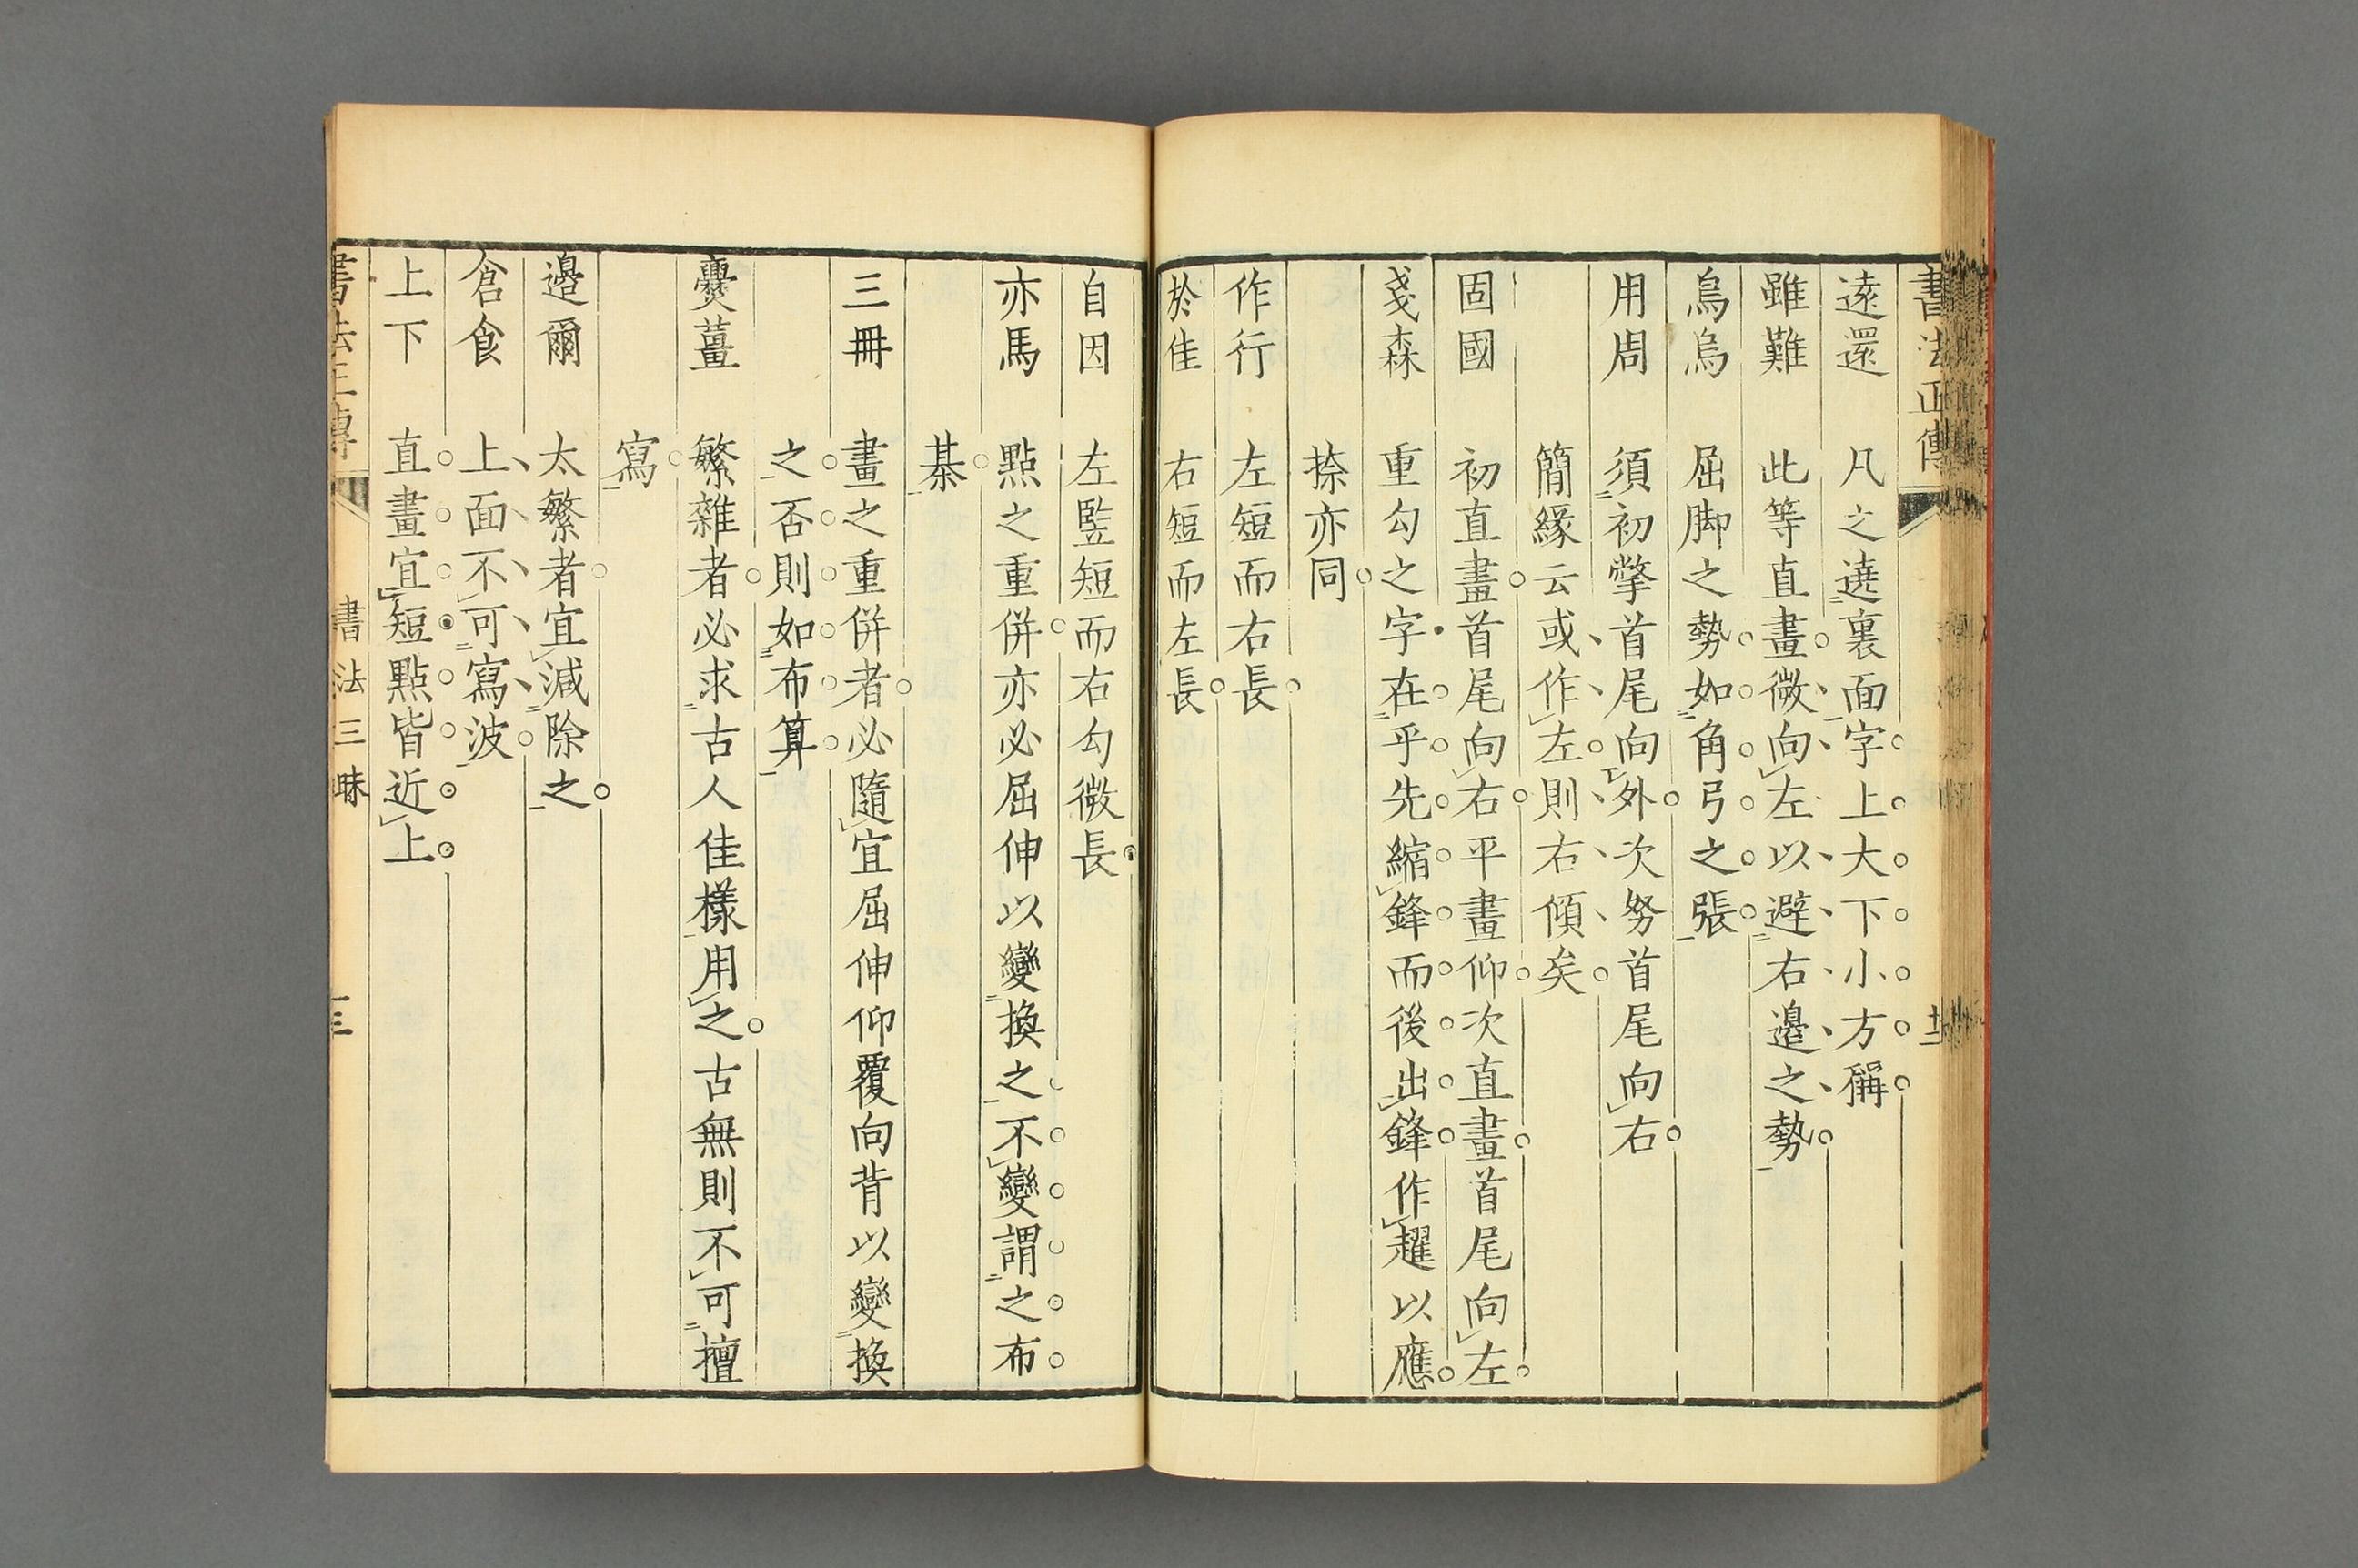 書法正傳
遠還　凡之遶裏面字上大下小方稱
雖難　此等直畫微向左以避右邊之勢
鳥烏　屈脚之勢如角弓之張
用周　須初撆首尾向外次努首尾向右
簡緣云或作左則右傾矣
固國　初直畫首尾向右平畫仰次直畫首尾向左
戔森　重勾之字在乎先縮鋒而後出鋒作趯以應
捺亦同
作行　左短而右長
於佳　右短而左長
自因　左竪短而右勾微長
亦馬　點之重併亦必屈伸以變換之不變謂之布
棊
三冊　畫之重併者必隨宜屈伸仰覆向背以變換
之否則如布算
爨薑　繁雜者必求古人佳樣用之古無則不可擅
寫
邉爾　太繁者宜減除之
倉食　上面不可寫波
上下　直畫宜短點皆近上
書法正傳
書法三昧